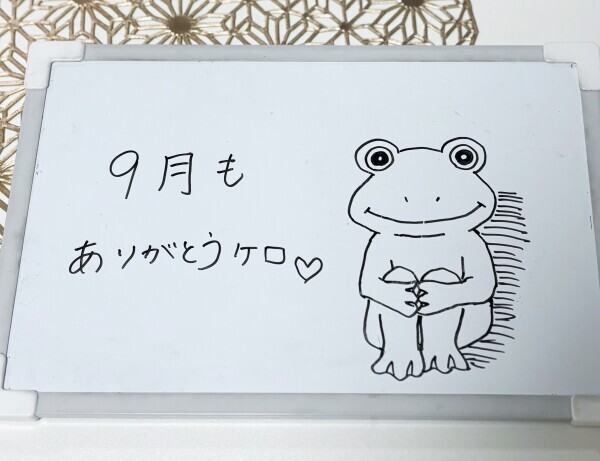 9月も
ありがとうケロ♡